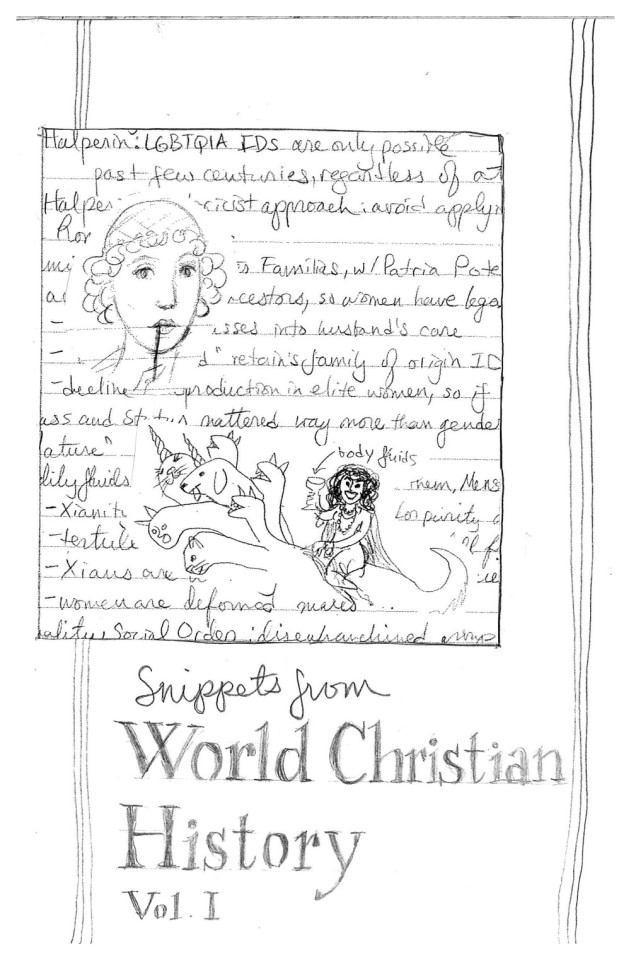 Halperin: LGBTQIA IDs are only possible
past few centuries, regardless of at
Halper ricist approach: avoid apply
Ror
mi s Familias, w/ Patria Pote
ai ncestors, so women have lega
- sses into husband's care
- d" retain's family of origin ID
- decline production in elite women, so if
ass and Status mattered way more than gender
ature"
body fluids
dily fluids men, Mens
- Xianity for purity
- tertulle
- Xians are
- women are deformed males...
ality, Social Order: disenfranchised
Snippets from
World Christian
History
Vol. I